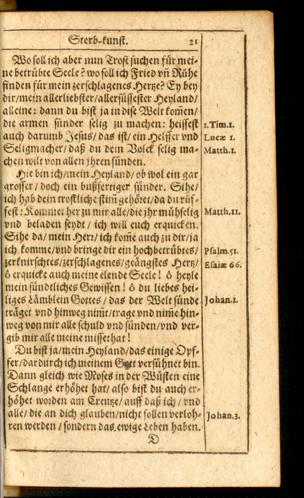 Sterb-kunst. 21
Wo soll ich aber nun Trost suchen für mei-
ne betrübte Seele? wo soll ich Fried vñ Rühe
finden für mein zerschlagenes Hertze? Ey bey
dir/mein allerliebster/allersüssester Heyland/
alleine: dann du bist ja in dise Welt komẽn/
die armen sünder selig zu machen: heissest 1.Tim.1.
auch darumb Jesus/das ist/ein Helffer und Lucæ 1.
Seligmacher/daß du dein Volck selig ma- Matth.1.
chen wilt von allen jhren sünden.
Hie bin ich/mein Heyland/ob wol ein gar
grosser/doch ein bußfertiger sünder. Sihe/
ich hab dein trostliche stim̃ gehöret/da du rüf-
fest: Kommet her zu mir alle/die jhr mühselig Matth.11.
vnd beladen seydt/ich will euch erquicken.
Sihe da/mein Herr/ich kom̃e auch zu dir/ja
ich komme/vnd bringe dir ein hochbetrübtes/ Psalm.51.
zerknirschtes/zerschlagenes/geängstes Hertz/
ô erquicke auch meine elende Seele! ô heyle Esaiæ 66.
mein sündtliches Gewissen! ô du liebes hei-
liges Lämblein Gottes/das der Welt sünde Johan.1.
träget vnd hinweg nim̃t/trage vnd nim̃e hin-
weg von mir alle schuld vnd sünden/vnd ver-
gib mir alle meine missethat!
Du bist ja/mein Heyland/das einige Opf-
fer/dardurch ich meinem Gott versühnet bin.
Dann gleich wie Moses in der Wüsten eine
Schlange erhöhet hat/also bist du auch er-
höhet worden am Creutze/auff daß ich/vnd
alle/die an dich glauben/nicht sollen verloh- Johan.3.
ren werden/sondern das ewige Leben haben.
D